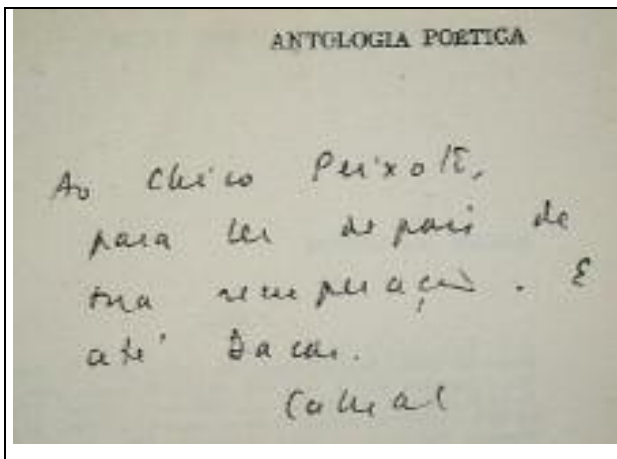 ANTOLOGIA POÉTICA
Ao Chico Peixoto,
para ler depois de
tua recuperação. E
até Dacar.
Cabral